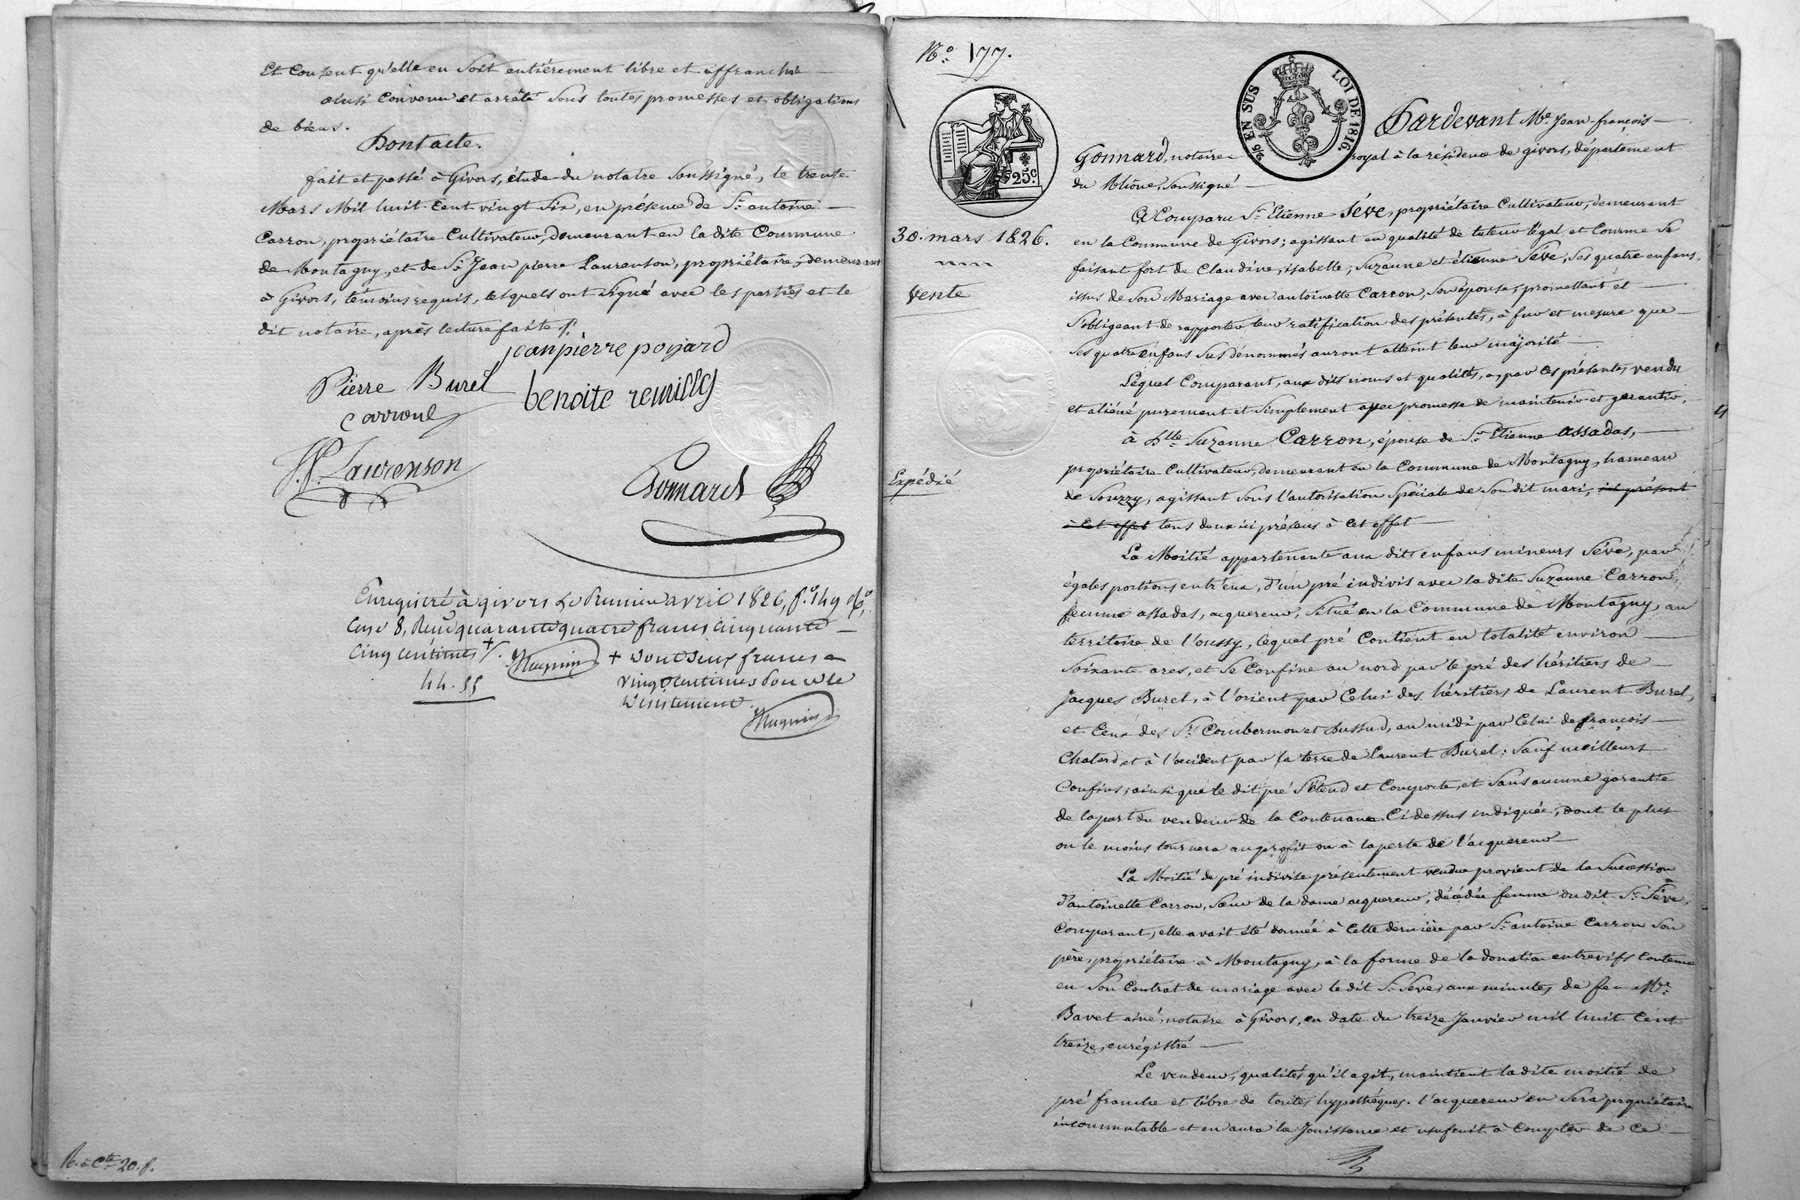 Et consent qu'elle en soit entièrement libre et affranchie
ainsi convenu et arrêté sous toutes promesses et obligations
de biens.
Dont acte.
fait et passé à Givors, étude du notaire soussigné, le trente
Mars Mil huit Cent vingt six, en présence de Sr. antoine
Carron, propriétaire Cultivateur, demeurant en la dite Commune
de Montagny, et de Sr. Jean pierre Laurenson, propriétaire, demeurant
à Givors, témoins requis, lesquels ont signé avec les parties et le
dit notaire, après lecture faite
jean pierre poyard
Pierre Burel
benoite remilly
Carrone
J.P. Laurenson
Gonnard
Enregistré à givors Le Premier avril 1826, f.o 149 R.o
Case 8, Reçu quarante quatre francs cinquante
cinq centimes +
Magnin + Dont Deux francs
44.55
vingt centimes Pour Le
Dixieme
Magnin
R. à Cte. 20. f.
No. 177.
2/5 EN SUS
LOI DE 1816.
25c
30. mars 1826.
Vente
Expédié
Pardevant Me. Jean-françois
Gonnard, notaire royal à la résidence de givors, département
du Rhône, soussigné
A Comparu Sr. Etienne Séve, propriétaire Cultivateur, demeurant
en la Commune de Givors; agissant en qualité de tuteur légal et Comme se
faisant fort de Claudine, isabelle, Suzanne et étienne Séve, ses quatre enfans,
issus de Son Mariage avec antoinette Carron, Son épouse, promettant et
s'obligeant de rapporter leur ratification des présentes, à fur et mesure que
ses quatre enfans susdénommés auront atteint leur majorité
Lequel Comparant, aux dits noms et qualités, a, par ces présentes, vendu
et aliéné purement et simplement avec promesse de maintenir et garantir,
à Suzanne Carron, épouse de Sr. Etienne assadas,
propriétaire Cultivateur, demeurant en la Commune de Montagny, hameau
de Souzzy, agissant sous l'autorisation spéciale de son dit mari, ici présent
à cet effet tous deux ici présens à cet effet
La Moitié appartenante aux dits enfans mineurs Séve, par
égales portions entr'eux, d'un pré indivis avec la dite Suzanne Carron,
femme assadas, acquereur, Situé en la Commune de Montagny, au
territoire de l'oussy, lequel pré Contient en totalité environ
soixante ares, et se Confine au nord par le pré des héritiers de
Jacques Burel, à l'orient par Celui des héritiers de Laurent Burel,
et Ceux des Srs. Combermon et Dussud, au midi par Celui de françois
Chatard et à l'occident par la terre de Laurent Burel; Sauf meilleurs
Confins, ainsi que le dit pré s'étend et Comporte, et sans aucune garantie
de la part du vendeur de la Contenance Ci dessus indiquée, dont le plus
ou le moins tournera au profit ou à la perte de l'acquereur
La Moitié de pré indivise présentement vendue provient de la Succession
d'antoinette Carron, sœur de la dame acquereur, décédée femme du dit Sr. Séve,
Comparant, elle avait été donnée à Cette dernière par Sr. antoine Carron Son
père, propriétaire à Montagny, à la forme de la donation entrevifs Contenue
en Son Contrat de mariage avec le dit Sr. Séve, aux minutes de feu Me.
Bavet ainé, notaire à Givors, en date du treize Janvier mil huit Cent
treize, enrégistré
Le vendeur, qualités qu'il agit, maintient la dite moitié de
pré franche et libre de toutes hypothéques. l'acquereur en Sera propriétaire
incommutable et en aura la Jouissance et usufruit à Compter de Ce